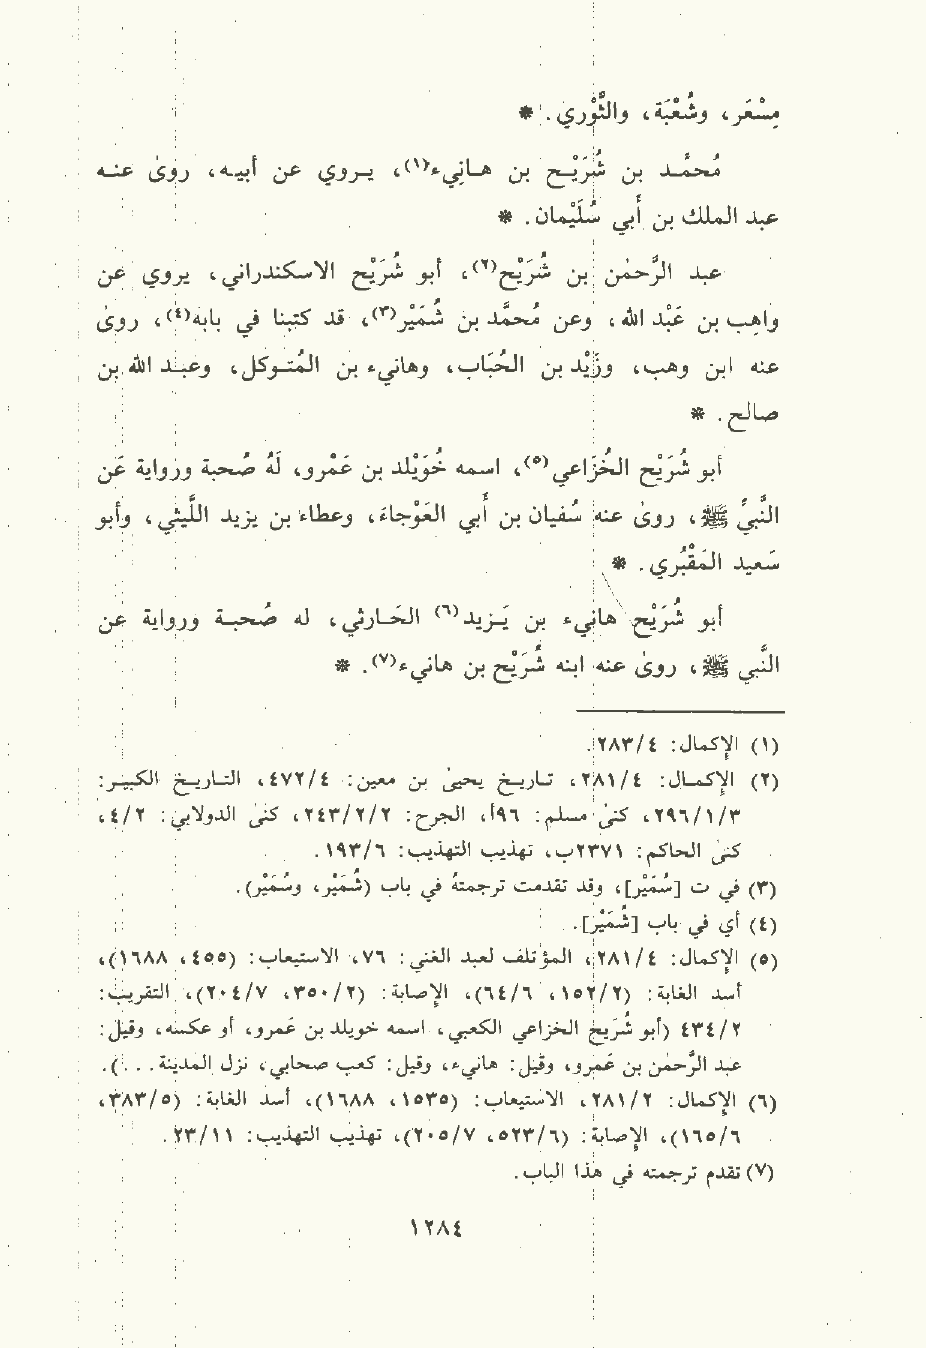 مِسْعَر، وشُعْبَة، والثَّوْري. *
مُحمَّـد بن شُرَيْـح بن هـانِيء(١)، يـروي عن أبيـه، روىٰ عنـه
عبد الملك بن أبي سُلَيْمان. *
عبد الرَّحمٰن بن شُرَيْح(٢)، أبو شُرَيْح الاسكندراني، يروي عن
واهِب بن عَبْد الله، وعن مُحمَّد بن شُمَيْر(٣)، قد كتبنا في بابه(٤)، روىٰ
عنه ابن وهب، وزَيْد بن الحُبَاب، وهانيء بن المُتـوكل، وعبـد الله بن
صالح. *
أبو شُرَيْح الخُزاعي(٥)، اسمه خُوَيْلد بن عَمْرو، لَهُ صُحبة ورواية عَن
النَّبيِّ ﷺ، روىٰ عنه سُفيان بن أبي العَوْجَاء، وعطاء بن يزيد اللَّيثي، وأبو
سَعيد المَقْبُري. *
أبو شُرَيْح هانيء بن يَـزيد(٦) الحَـارثي، له صُحبـة ورواية عن
النَّبي ﷺ، روىٰ عنه ابنه شُرَيْح بن هانيء(٧). *
(١) الإكمال: ٢٨٣/٤.
(٢) الإكمـال: ٢٨١/٤، تـاريـخ يحيىٰ بن معين: ٤٧٢/٤، التـاريـخ الكبيـر:
٢٩٦/١/٣، كنىٰ مسلم: ٩٦أ، الجرح: ٢٤٣/٢/٢، كنىٰ الدولابي: ٤/٢،
كنىٰ الحاكم: ٢٣٧١ب، تهذيب التهذيب: ١٩٣/٦.
(٣) في ت [سُمَيْر]، وقد تقدمت ترجمتهُ في باب (شُمَيْر، وسُمَيْر).
(٤) أي في باب [شُمَيْر].
(٥) الإكمال: ٢٨١/٤، المؤتلف لعبد الغني: ٧٦، الاستيعاب: (٤٥٥، ١٦٨٨)،
أسد الغابة: (١٥٢/٢، ٦٤/٦)، الإصابة: (٣٥٠/٢، ٢٠٤/٧)، التقريب:
٤٣٤/٢ (أبو شُريح الخزاعي الكعبي، اسمه خويلد بن عَمرو، أو عكسه، وقيل:
عبد الرَّحمٰن بن عَمرو، وقيل: هانيء، وقيل: كعب صحابي، نزل المدينة. . .).
(٦) الإكمال: ٢٨١/٢، الاستيعاب: (١٥٣٥، ١٦٨٨)، أسد الغابة: (٣٨٣/٥،
١٦٥/٦)، الإصابة: (٥٢٣/٦، ٢٠٥/٧)، تهذيب التهذيب: ٢٣/١١.
(٧) تقدم ترجمته في هذا الباب.
١٢٨٤